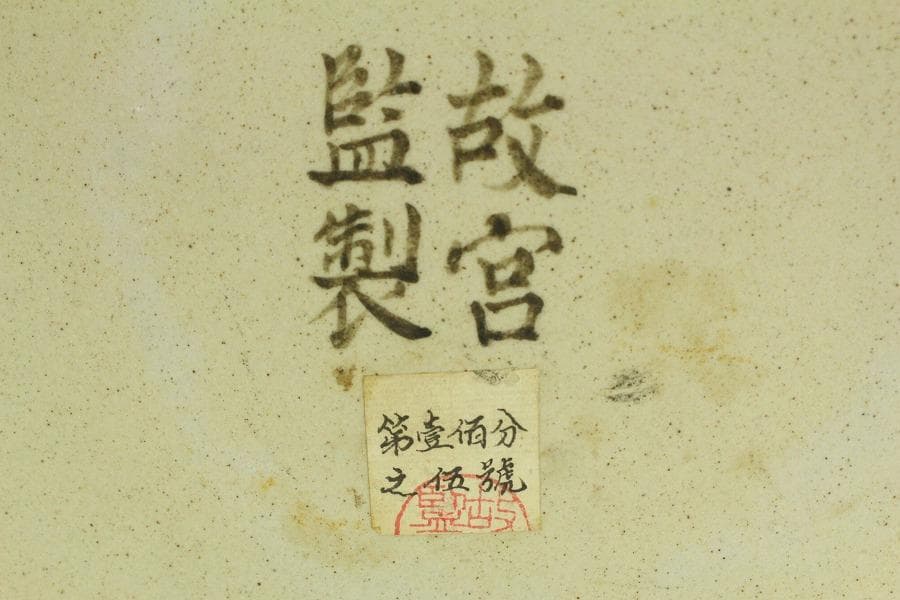 故宮
監製
第壹佰分
之伍號
故監